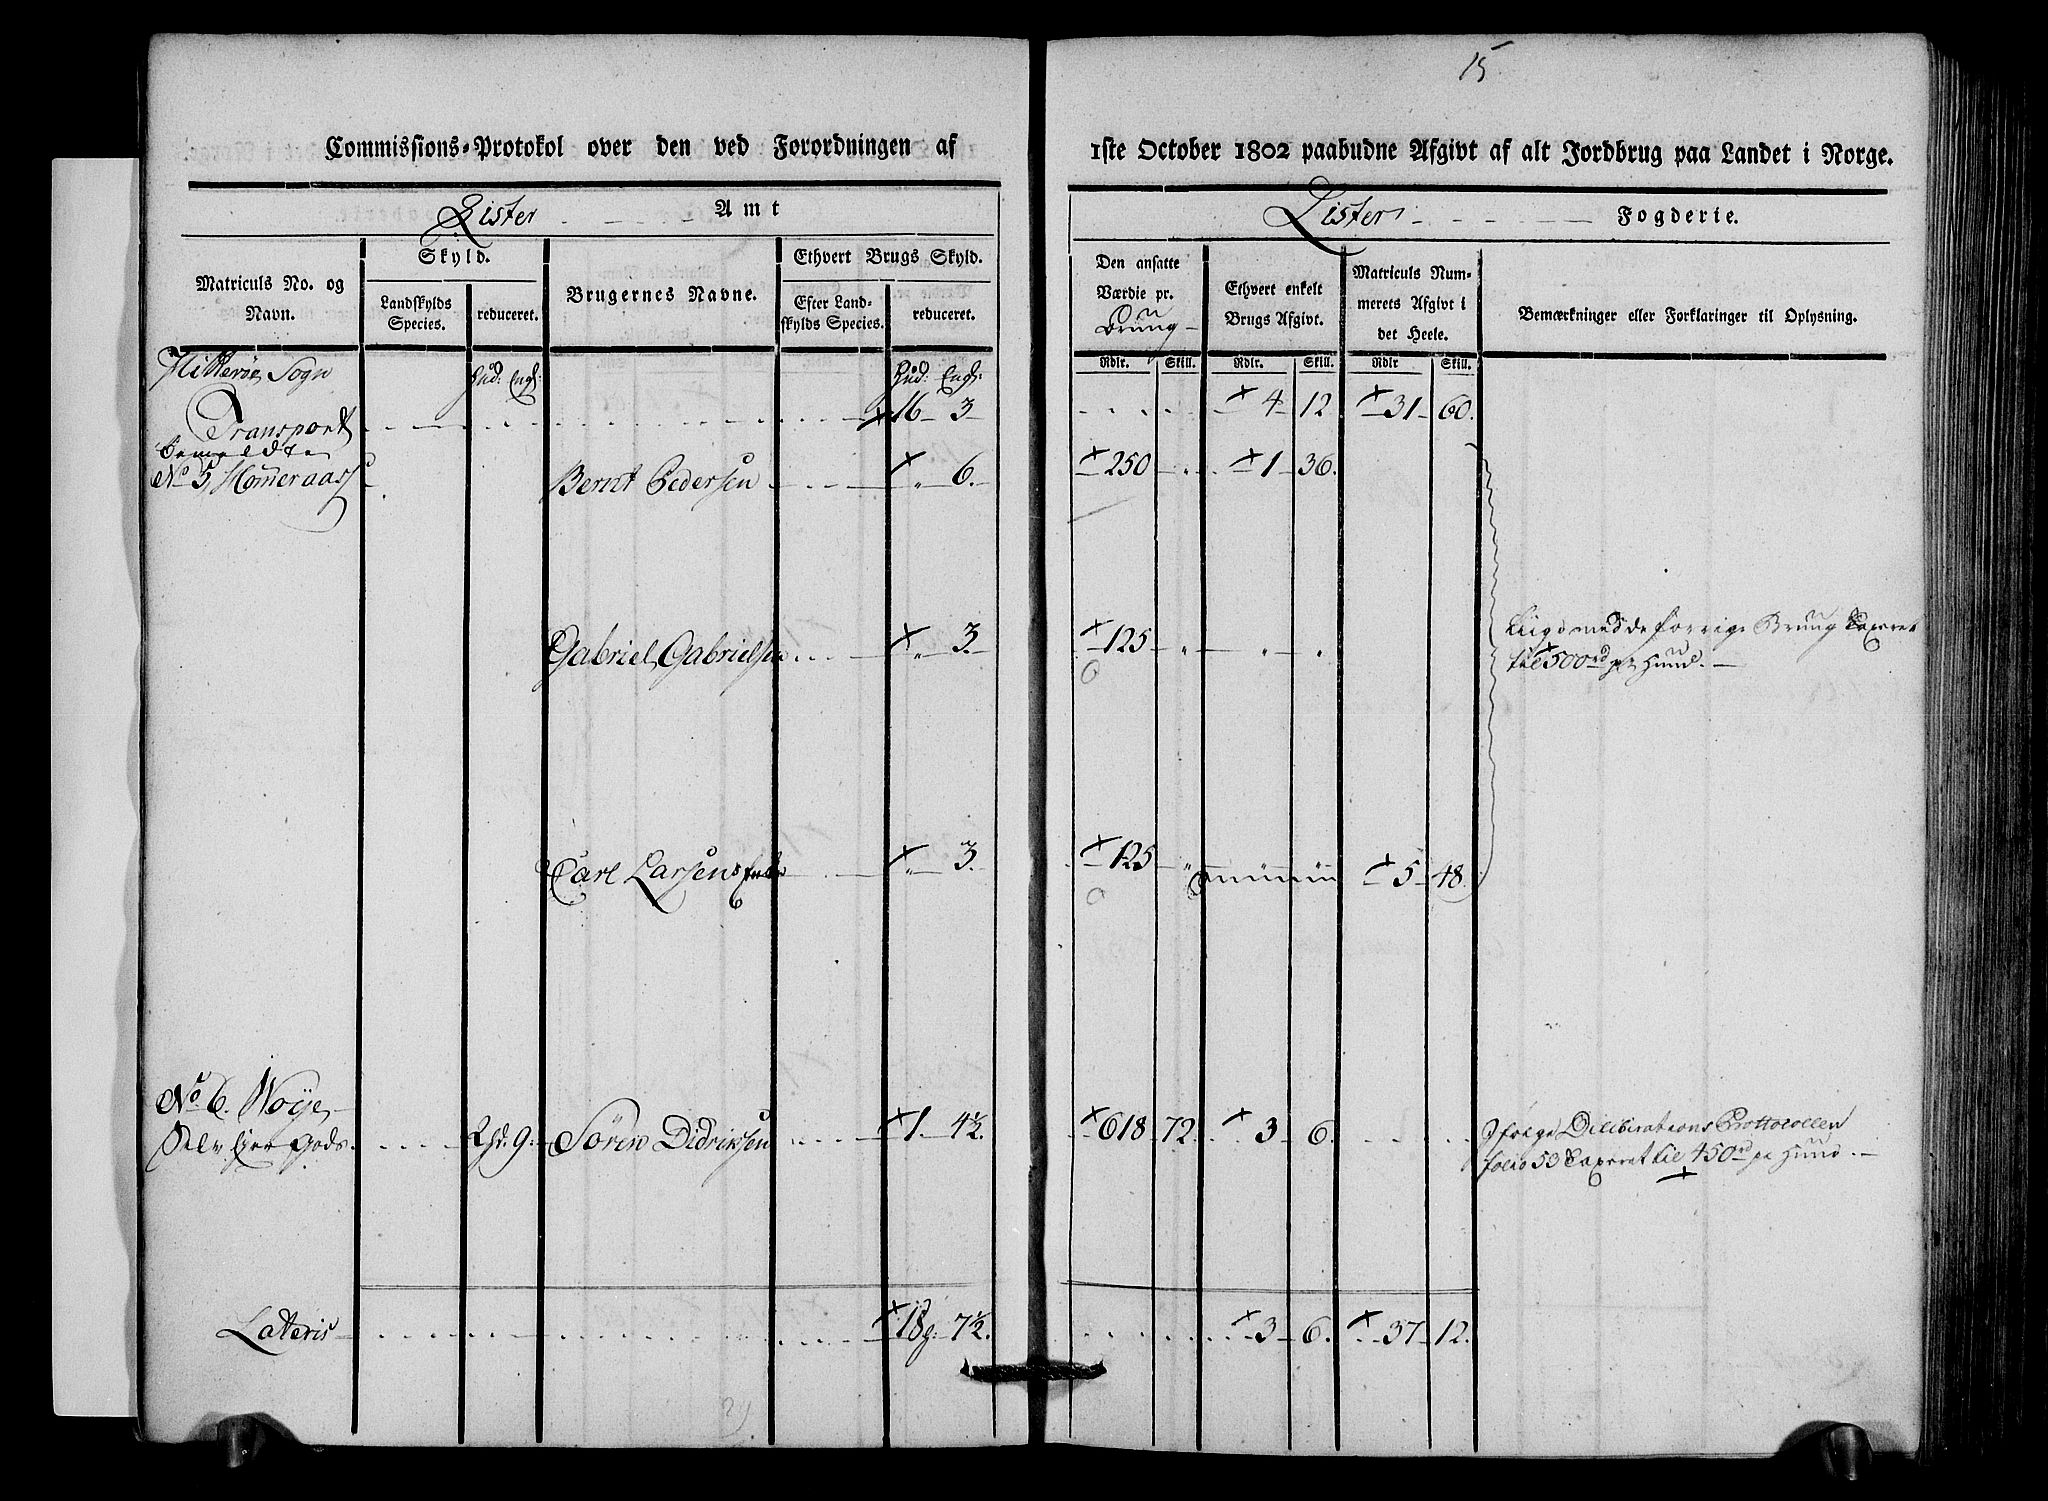 15
Commissions-Protokol over den ved Forordningen af
1ste October 1802 paabudne Afgivt af alt Jordbrug paa Landet i Norge.
Lister Amt
Lister Fogderie.
Matriculs No. og Navn.
Skyld.
Landskylds Species.
reduceret.
Brugernes Navne.
Ethvert Brugs Skyld.
Efter Landskylds Species.
reduceret.
Den ansatte Værdie pr. Brug
Ethvert enkelt Brugs Afgivt.
Matriculs Nummerets Afgivt i det Heele.
Bemærkninger eller Forklaringer til Oplysning.
Rdlr. Skill. Rdlr. Skill. Rdlr Skill.
Hitterøe Sogn
Hud: Engl:
Hud: Engl:
Transport 16 3 4 12 31 60.
bemeldte
No 5, Homeraas Bernt Pedersen " 6. 250 " 1 36.
Gabriel Gabrielsen " 3. 125 " " "
Ligemed de forrige Brug Taxeret
til 500rd pr Hud.
Carl Larsens Enke " 3. 125 " 5 48.
No 6. Woije
Selv Eyer Gods. 2hd. 9. Sören Didriksen 1 4½. 618 72. 3 6.
Ifølge Deliberations Prottocollen
folio 53 Taxeret til 450rd pr Hud.
Latteris 18 7½. 3 6. 37 12.